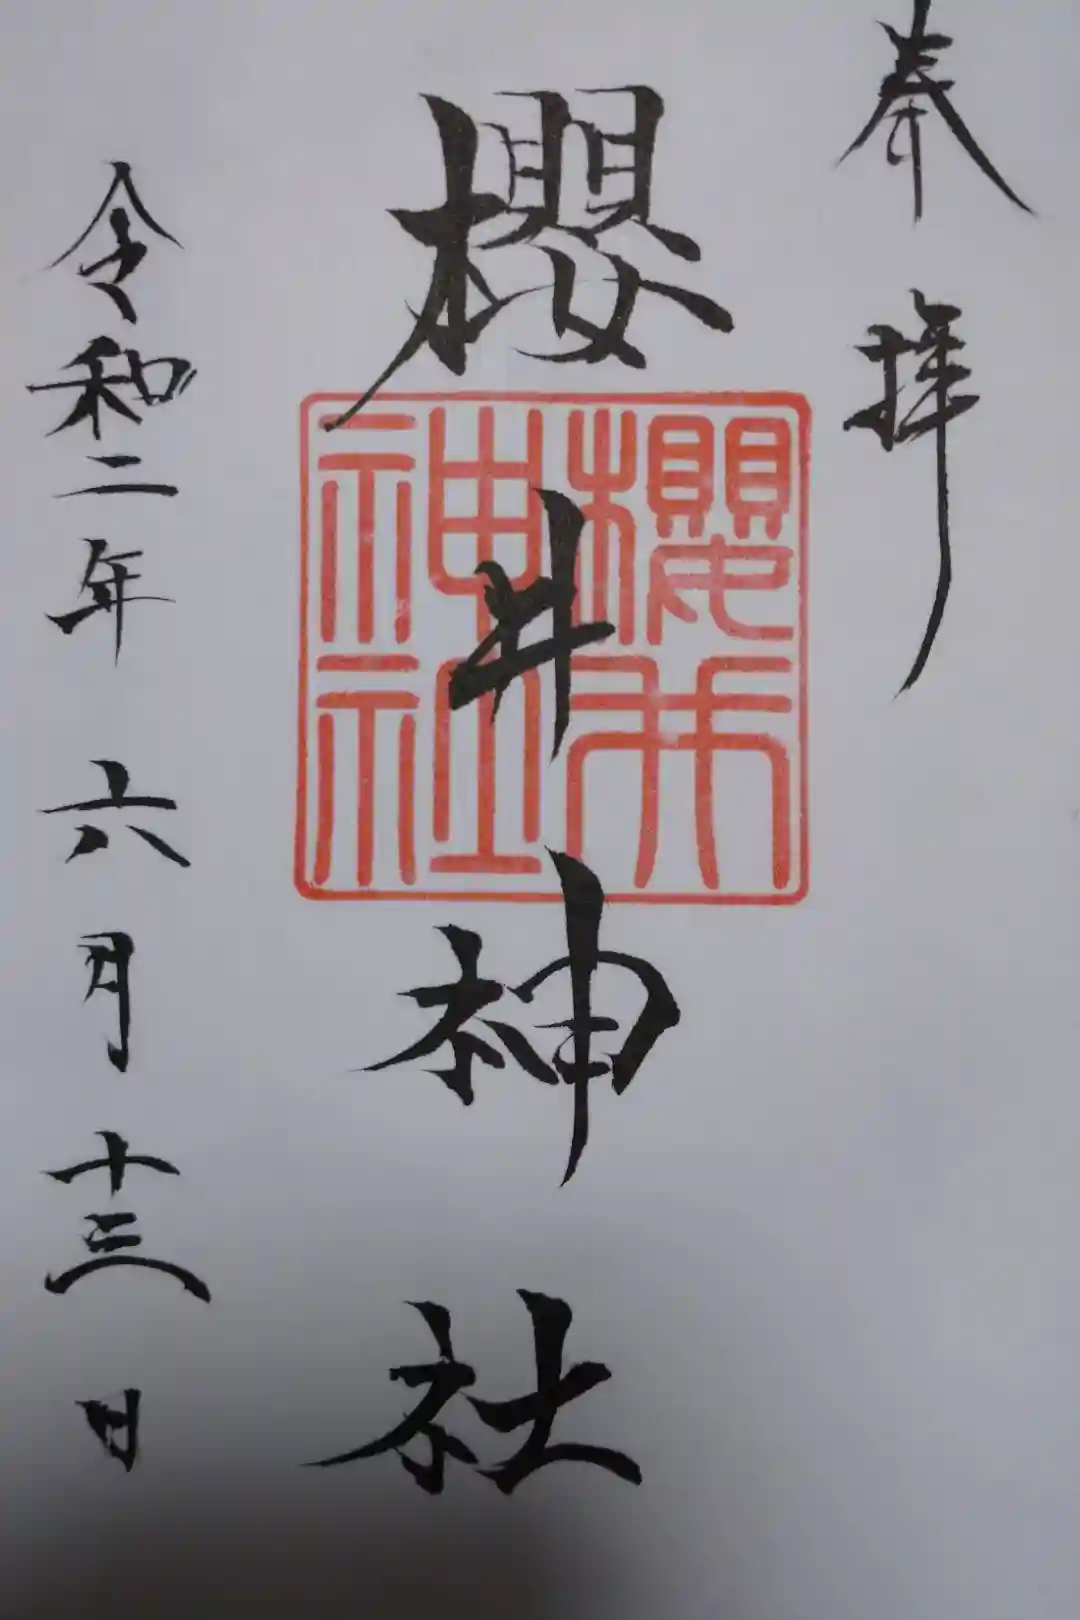 奉拝
櫻井神社
櫻井
神社
令和二年六月十三日